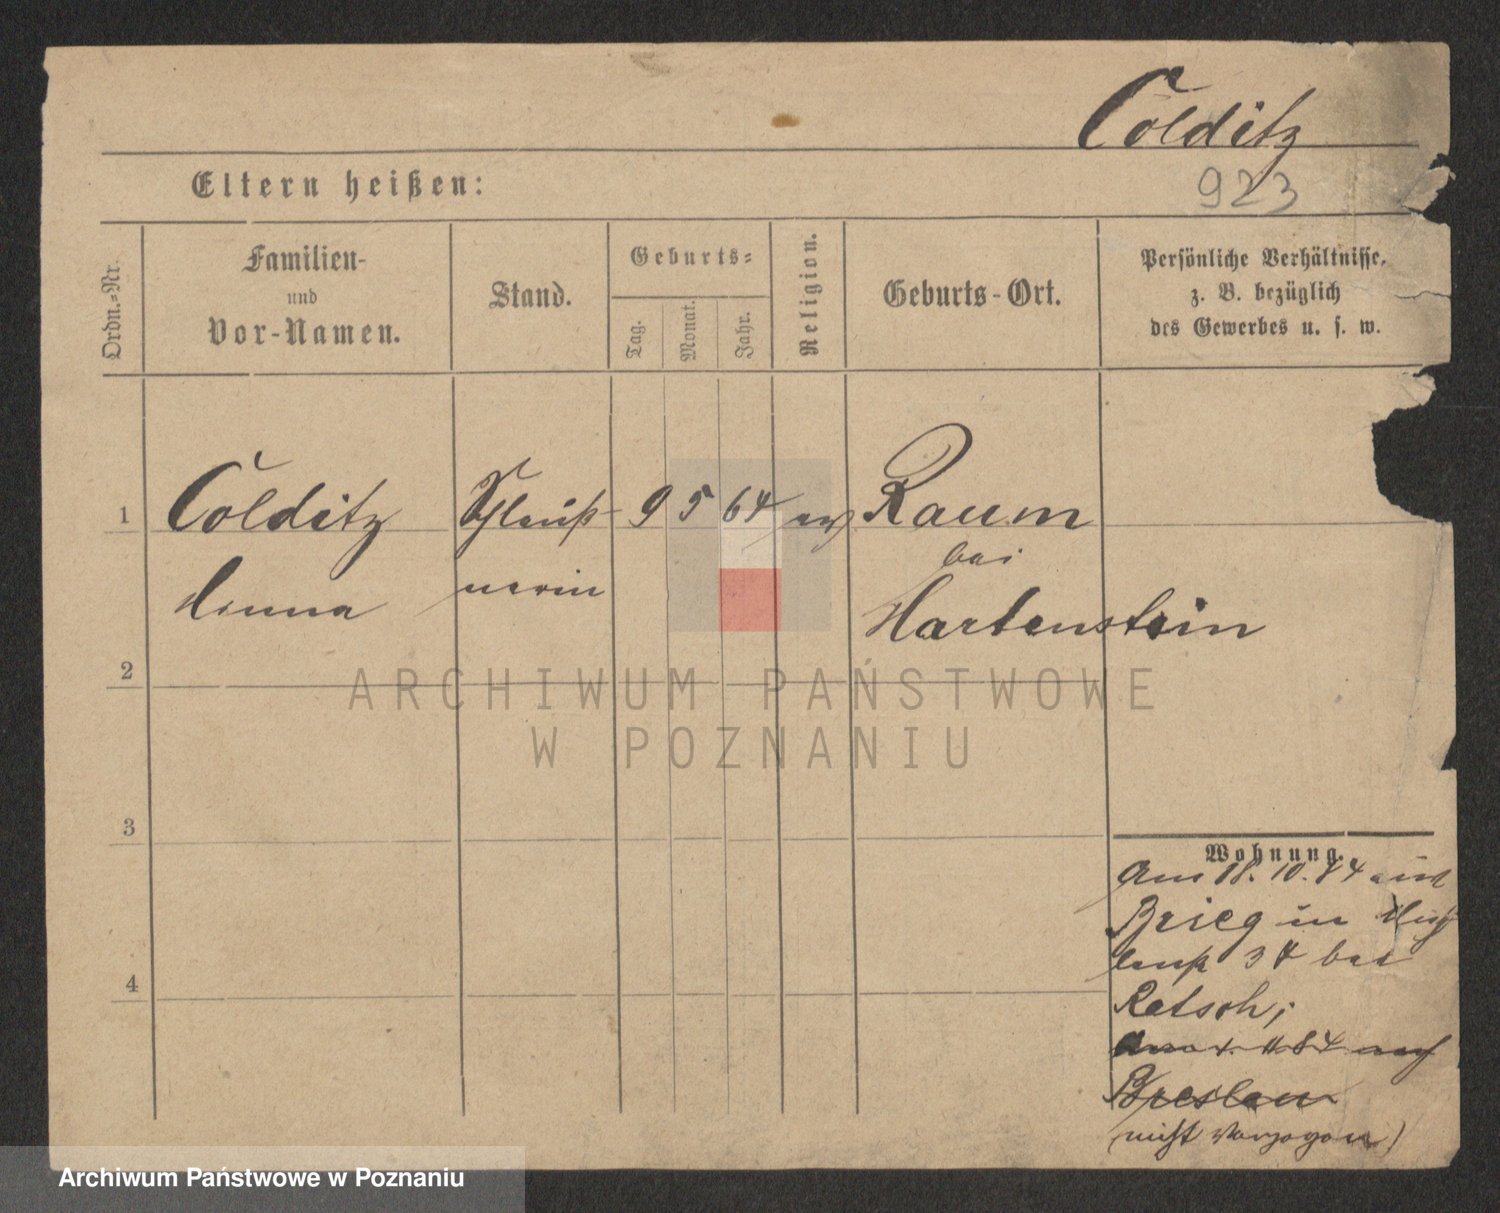 Colditz
923
Eltern heißen:
Ordn.-Nr.
Familien-
und
Vor-Namen.
Stand.
Geburts-
Tag.
Monat.
Jahr.
Religion.
Geburts-Ort.
Persönliche Verhältnisse,
z. B. bezüglich
des Gewerbes u. s. w.
1
Colditz
9 5 64
Raum
bei
Hartenstein
2
ARCHIWUM PAŃSTWOWE
W POZNANIU
3
Wohnung.
Am 18. 10. 84 aus
Brieg in
34 bei
Retsch;
4
84 nach
Breslau
nicht verzogen)
Archiwum Państwowe w Poznaniu